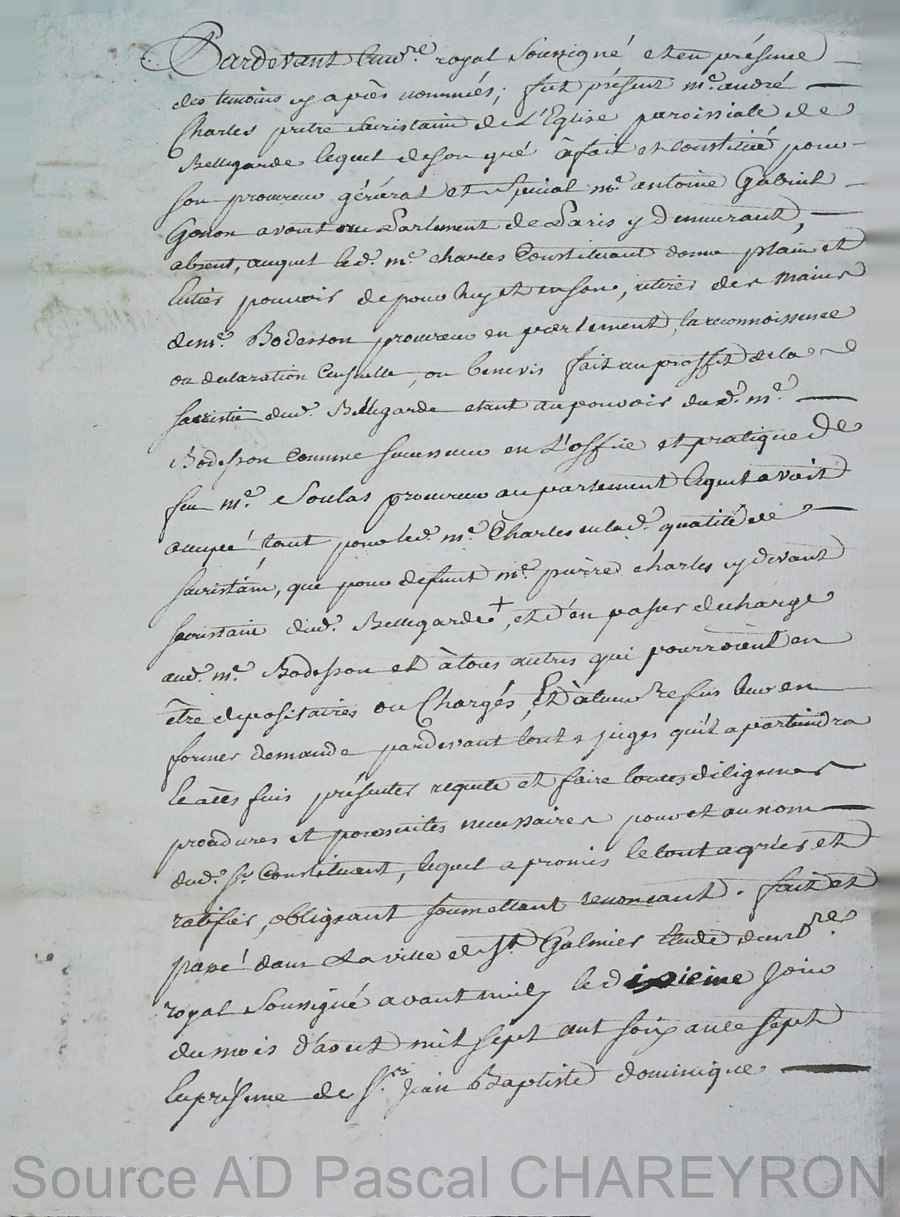 Pardevant le no.re royal soussigné et en présence
des temoins cy après nommés; fut présent m.e andré
Charles pretre sacristain de L'Eglise paroissiale de
Bellegarde lequel de son gré à fait et constitué pour
son procureur général et special m.e antoine Gabriel
Gonon avocat au Parlement de Paris y demeurant,
absent, auquel led. m.e charles Constituant donne plain et
entier pouvoir de pour luy et en son, retirer des mains
de m.e Bodesson procureur en parlement la reconnoissance
ou declaration Censuelle, ou benevis fait au proffit de la
sacristie dud. Bellegarde etant au pouvoir dud. m.e
Bodesson comme successeur en L'office et pratique de
feu m.e Soulas procureur au parlement lequel avoit
occupé tant pour led. m.e Charles en lad. qualité de
sacristain, que pour defunt m.e pierre charles cy devant
sacristain dud. Bellegarde +, et d'en passer decharge
aud. m.e Bodesson et à tous autres qui pourroient en
être depositaires ou Chargés, Et à leur refus leur en
former demande pardevant touts juges qu'il apartiendra
et à ces fins présenter requete et faire toutes diligences
procedures et poursuites necessaires pour et au nom
dud. Sr. Constituant, lequel a promis le tout agréer et
ratifier, obligeant soumettant renoncant. fait et
passé dans La ville de St Galmier Etude du no.re
royal soussigné avant midy le dixieme jour
du mois d'aout mil sept cent soixante sept
En présence de S.rs Jean Baptiste dominique
Source AD Pascal CHAREYRON